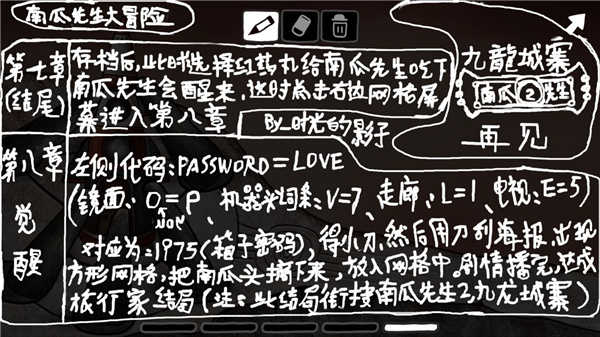 南瓜先生大冒险
第七章
(结尾)
存档后,此时选择红药丸给南瓜先生吃下
南瓜先生会醒来,这时点击右边网格屏
幕进入第八章
By_时光的影子
九龍城寨
南瓜2先生
再见
第八章
觉
醒
左侧代码:PASSWORD=LOVE
(镜面、O=P、机器、V=7、走廊、L=1、电视、E=5)
对应为:1975(箱子密码),得小刀,然后用刀刮海报,出现
方形网格,把南瓜头摘下来,放入网格中,剧情播完,达成
旅行家结局(注:此结局衔接南瓜先生2九龙城寨)